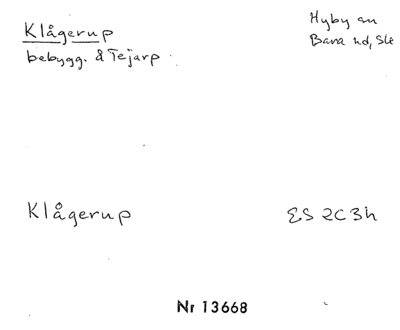 Klågerup
bebygg. & Tejarp
Hyby sn
Bara hd, Sk
Klågerup
ES 2C3h
Nr 13668